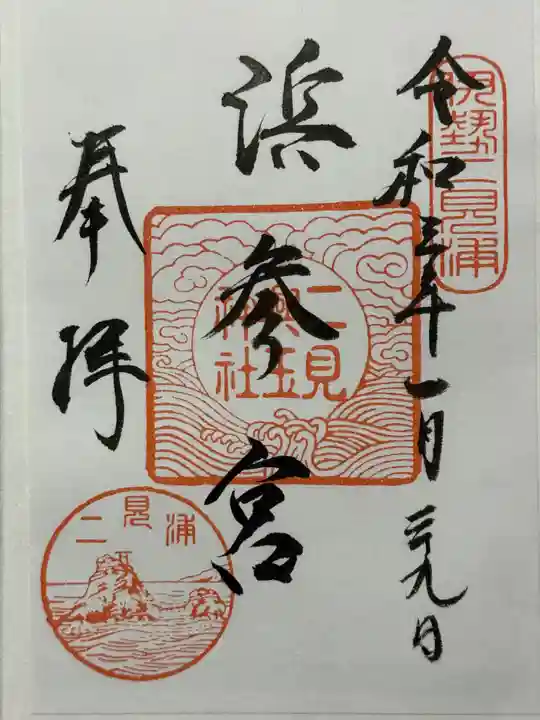 伊勢二見浦
令和三年一月二十九日
浜参宮
二見
興玉
神社
奉拝
二見浦